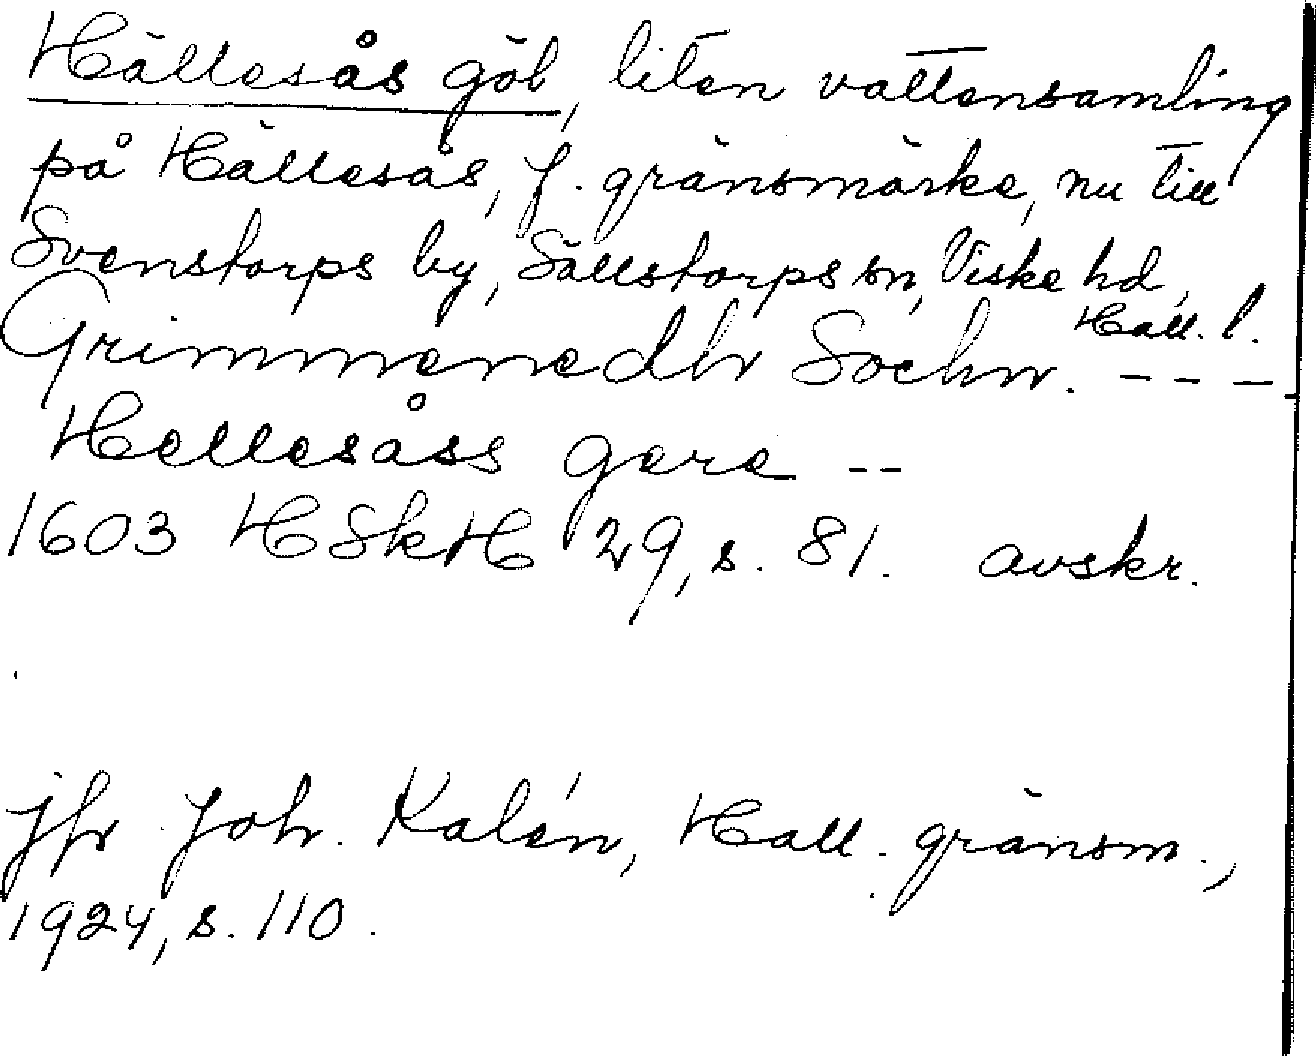 Hällesås göl, liten vattensamling
på Hällesås, f. gränsmärke, nu till
Svenstorps by, Sällstorps sn, Viske hd,
Hall. l.
Grimmenedhr Sochnr. - - - -
Hellesåss gere - -
1603 HSkH 29, s. 81. avskr.
jfr Joh. Kalén, Hall. gränsm.,
1924, s. 110.